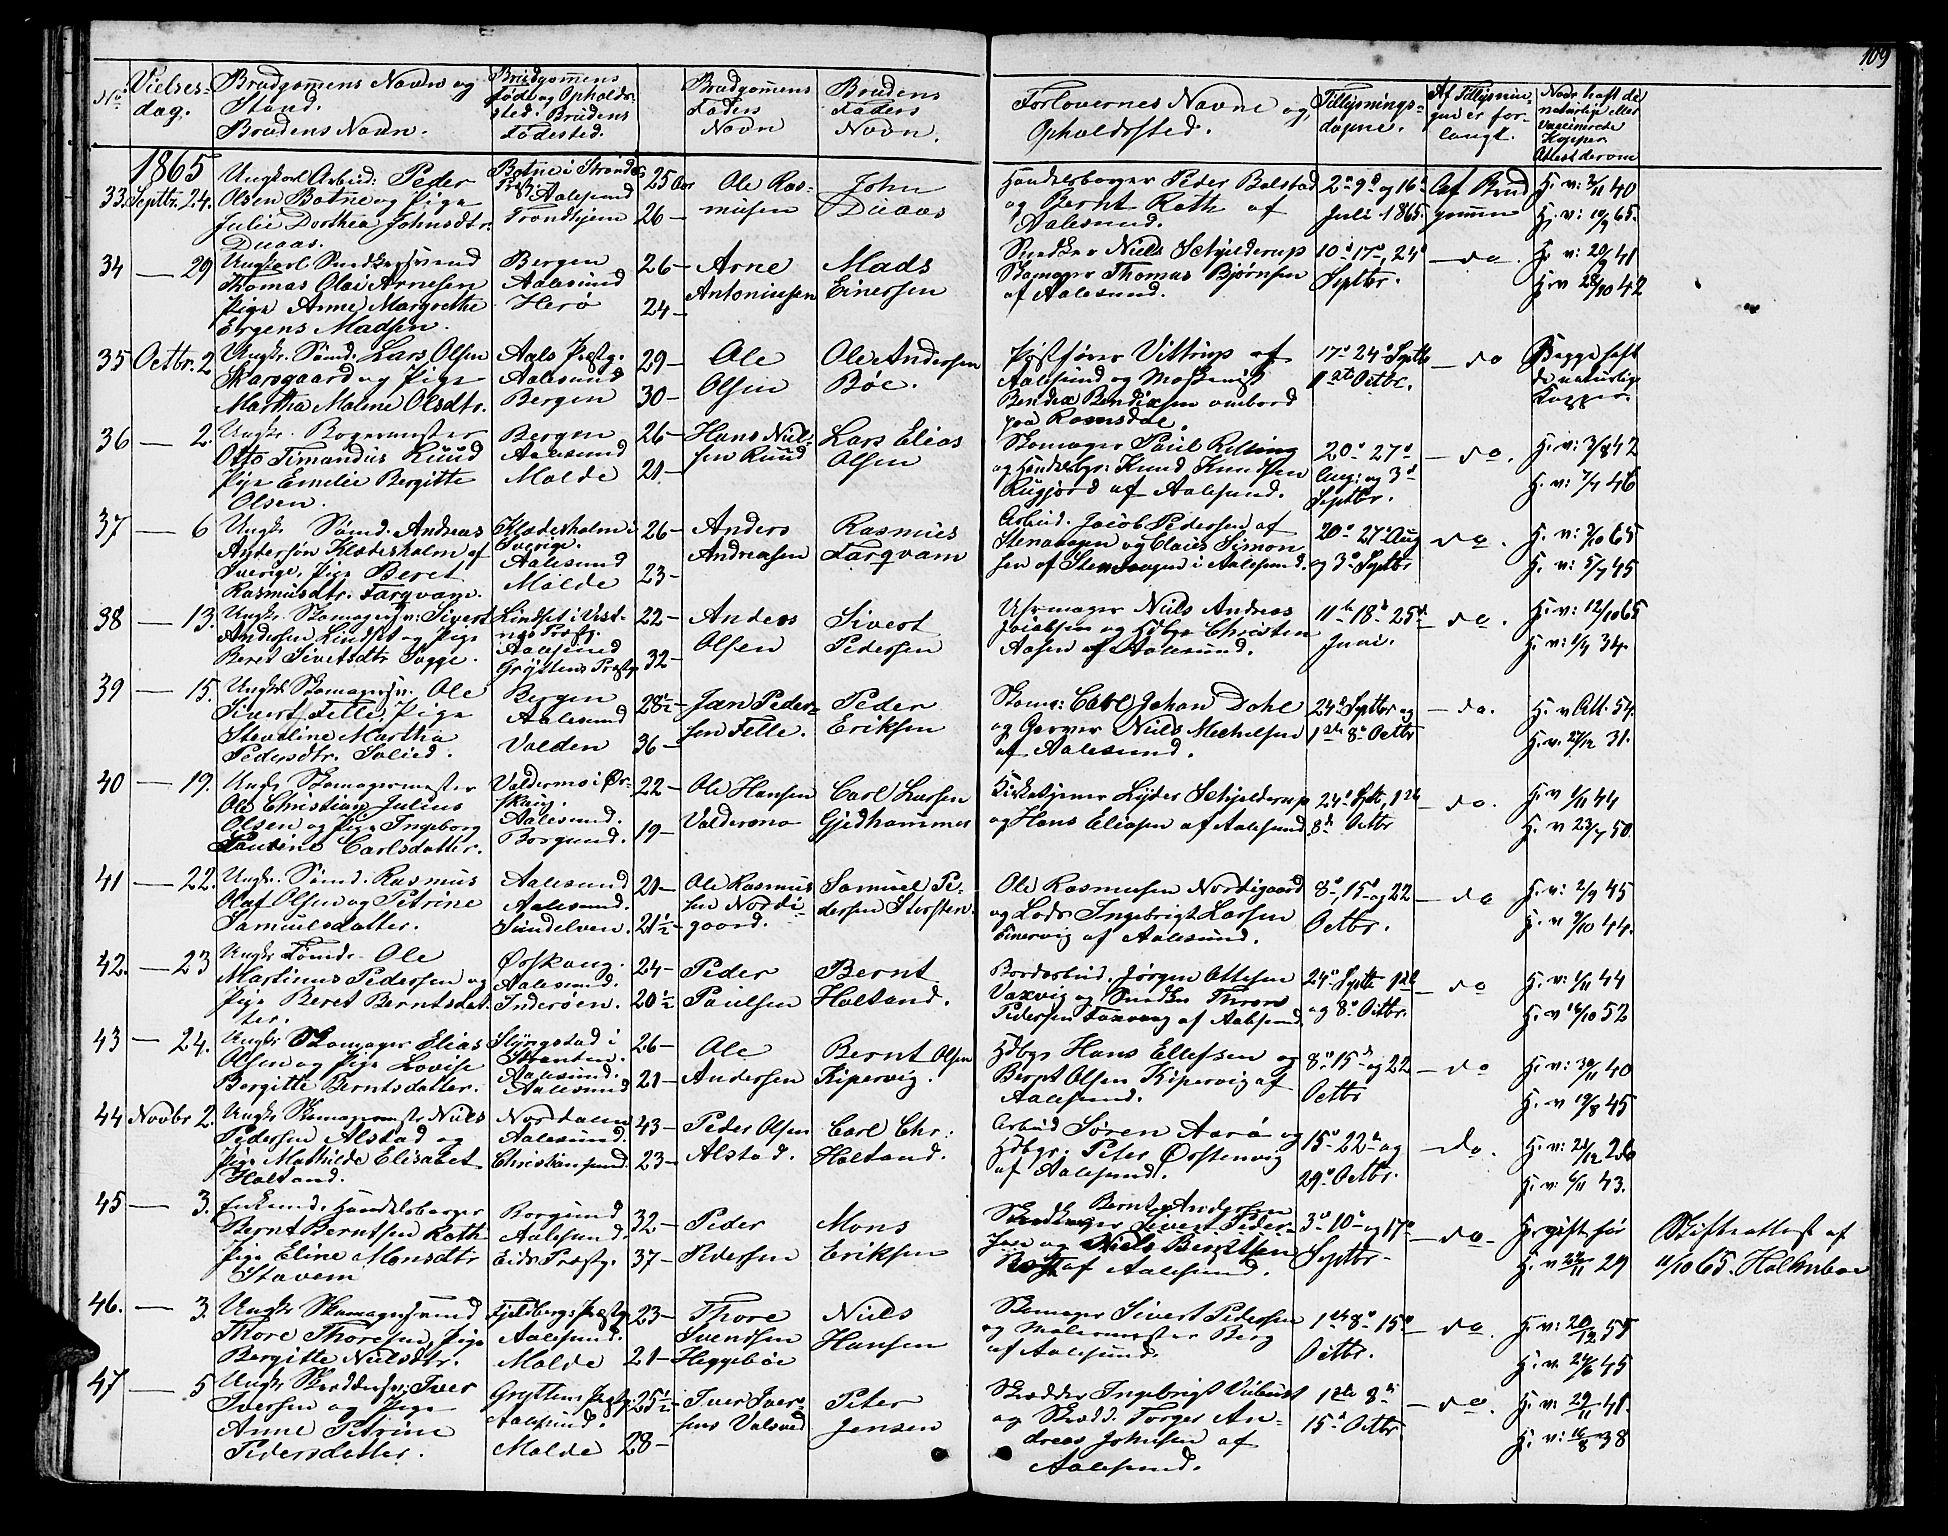 109
No. Vielses-dag. Brudgommens Navn og Stand. Brudens Navn. Brudgommens Føde og Opholds-sted. Brudens Fødested. Brudgomens Faders Navn Brudens Faders Navn. Forlovernes Navne og Opholdssted. Tillysnings-dagene. Af Tillysnin-gen er for-langt. Naar haft de naturlige eller Vaccinerede Kopper Attest derom
1865
33. Septbr. 24. Ungkarl Arbeid: Peder Olsen Botne og Pige Julie Dorthea Johnsdtr. Duaas. Aalesund Trondhjem 25 Aar 26 – Ole Ras-musen John Duaas Handelsborger Peder Bolstad og Bernt Rath af Aalesund. 2d 9d og 16d Juli 1865. Af Brud gommen H. v: 2/11 40 H. v: 10/9 65.
34 — 29 Ungkarl Snedkersvend Thomas Olai Arnesen Pige Anne Margrethe Madsen. Bergen Aalesund Herø 26 – 24 – Arne Antoniusen Mads Einersen Snedker Niels Schjelderup Skomager Thomas Bjørnsen af Aalesund. 10d 17d, 24d Septbr. — do. H. v: 20/9 41 H. v 28/10 42
35 Octbr. 2 Ungk. Sømd. Lars Olsen Skarsgaard og Pige Martha Malene Olsdtr. Aals Præstg. Aalesund Bergen 29 – 30 – Ole Olsen Ole Andersen Böe. Postfører Vittrup af Aalesund og Maskenist Bendix Bendixsen ombord paa Romsdal. 17d 24d Septb 1ste Octbr. — do Begge haft de naturlige Kopper.
36 — 2. Ungk. Otto Fimandus Ruud Pige Emelie Bergitte Olsen. Bergen Aalesund Molde 26 – 21 – Hans Niel-sen Ruud Lars Elias Olsen Skomager Paul Relling og Handelsbgr. Knud Knudsen af Aalesund. 20d 27d Aug: og 3d Septbr. — do. H. v: 3/8 42 H. v: 7/7 46
37 — 6 Ungk. Sømd. Andreas Andersøn Klædesholm af Sverige, Pige Beret Rasmusdtr. Farqvam. Klædesholm i Sverige. Aalesund Molde 26 – 23 – Anders Andreasen Rasmus Farqvam Arbeid. Jacob Pedersen af Stenvaagen og Claus Simon-sen af Stenvaagen i Aalesund. 20d 27d Aug og 3d Septbr do. H. v: 3/10 65 H. v: 5/7 45
38 — 13. Ungk. Skomagersv: Sivert Andersen Lindset og Pige Beret Sivetsdtr Sogge. Lindset i Vest-nes Præstg. Aalesund Gryttens Præstg 22 – 32 – Anders Olsen Sivert Pedersen Uhrmager Niels Andreas Jacobsen og Hdbgr Christen Aasen af Aalesund. 11te 18d 25d Juni. — do. H. v: 12/10 65 H. v: 1/7 34.
39 — 15. Ungk. Skomagersv. Ole Sivert Felle, Pige Steveline Martha Pedersdtr. Solied. Bergen Aalesund Volden 28½ – 36 – Jan Peder-sen Felle. Peder Eriksen Skom: Carl Johan Dahl og Garver Niels Mechelsen af Aalesund. 24d Septbr og 1ste 8d Octbr — do. H. v Att. 54. H. v. 27/12 31.
40 — 19. Ungk Skomagermester Ole Christian Julius Olsen og Pige Ingeborg Laurine Carlsdatter. Valdermo i Ør-skoug. Aalesund. Borgund. 22 – 19 – Ole Hansen Valdermo Carl Larsen Gjedhammer Kirketjener Lyder Schjelderup og Hans Eliasen af Aalesund 24d Septb, 1ste 8d Octbr — do. H. v 1/11 44 H. v 23/7 50.
41 — 22. Ungk. Sømd. Rasmus Olaf Olsen og Petrine Samuelsdatter. Aalesund Aalesund. Sundelven. 21 – 21½ – Ole Rasmus sen Nordi-gaard. Samuel Pe-dersen Storsten. Ole Rasmusen Nordigaard og Lods Ingebrigt Larsen af Aalesund. 8d, 15d og 22 Octbr. — do H. v: 2/9 45 H. v 9/10 44.
42. — 23 Ungk Sømd. Ole Martinus Pedersen og Pige Beret Berntsdat-ter. Ørskoug. Aalesund. Inderøen. 24 – 20½ – Peder Paulsen Bernt Holtand. Bordarbeid. Jørgen Ottesen Vaxvig og Snedker Thron Pedersen af Aalesund 24d Septb 1ste og 8d Octbr. — do H. v: 1/11 44 H. v 16/10 52
43 — 24. Ungk Skomager Elias Olsen og Pige Lovise Bergitte Berntsdatter. Slyngstad i Stranden. Aalesund. Aalesund 26 – 21 – Ole Andersen Bernt Olsen Kipervig. Hdbgr Hans Ellefsen og Bernt Olsen Kipervig af Aalesund. 8d 15d og 22 Octbr — do H. v: 30/11 40 H. v 19/8 45
44 Novbr 2. Ungk Skomagermester Niels Pedersen Alstad og Pige Mathilde Elisabet Holtand. Nordalen Aalesund. Christiansund. 43 – 23 – Peder Olsen Alstad. Carl Chr: Holtand. Arbeid Søren Aarø og Hdbgr. Peter Ørstenvig af Aalesund. 15d 22d og 29d Octbr. — do. H. v: 21/12 26 H. v: 6/11 43.
45 — 3. Enkemd. Handelsborger Bernt Berntsen Rath Pige Eline Monsdtr Stavem Borgund Aalesund. Eids Præstg. 32 – 37 – Peder Pedersen Mons Eriksen Bernt Andersen Sivert Peder-sen og Niels Berntsen af Aalesund. 3d 10d og 17d Septbr. — do. H. gift før H. v 22/11 29 Skifteattest af 11/10 65. Holmboe
46. — 3. Ungk Skomagersvend Thore Thoresen, Pige Bergitte Nielsdtr. Fjelbergs Præstg Aalesund. Molde 23 – 21 – Thore Svendsen Heggebøe Niels Hansen Skomager Sivert Pedersen og Malermester Berg af Aalesund. 1ste 8d 15d Octbr. — do. H. v: 20/12 55 H. v. 24/6 45
47 — 5 Ungk Iver Iversen og Pige Anne Petrine Pedersdatter. Gryttens Præstg. Aalesund. Molde 25½ – 28 – Iver Iver-sen Peter Jensen Skrædder Ingebrigt Viebust og Skrædd. Torger An-dreas Johnsen af Aalesund. 1ste 8d 15d Octbr — do. H. v: 29/11 41. H. v: 16/8 38